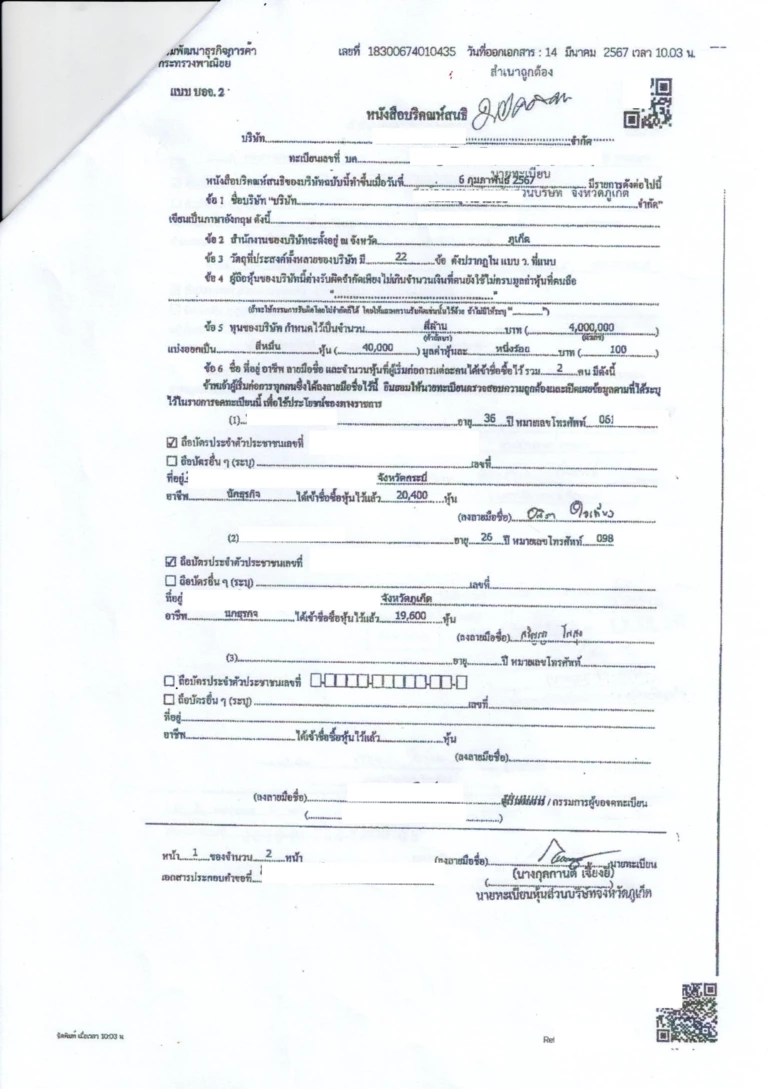 มพัฒนาธุรกิจการค้า เลขที่ 18300674010435 วันที่ออกเอกสาร : 14 มีนาคม 2567 เวลา 10.03 น.
กระทรวงพาณิชย์
สำเนาถูกต้อง
แบบ บอจ. 2
หนังสือบริคณห์สนธิ
บริษัท จำกัด
ทะเบียนเลขที่ บค.
นายทะเบียน
หนังสือบริคณห์สนธิของบริษัทฉบับนี้ทำขึ้นเมื่อวันที่ 6 กุมภาพันธ์ 2567 มีรายการดังต่อไปนี้
วนบริษัท จังหวัดภูเก็ต
ข้อ 1 ชื่อบริษัท "บริษัท จำกัด"
เขียนเป็นภาษาอังกฤษ ดังนี้
ข้อ 2 สำนักงานของบริษัทจะตั้งอยู่ ณ จังหวัด ภูเก็ต
ข้อ 3 วัตถุที่ประสงค์ทั้งหลายของบริษัท มี 22 ข้อ ดังปรากฏใน แบบ ว. ที่แนบ
ข้อ 4 ผู้ถือหุ้นของบริษัทนี้ต่างรับผิดจำกัดเพียงไม่เกินจำนวนเงินที่ตนยังใช้ไม่ครบมูลค่าหุ้นที่ตนถือ
(ถ้าจะให้กรรมการรับผิดโดยไม่จำกัดก็ได้
ข้อ 5 ทุนของบริษัท กำหนดไว้เป็นจำนวน สี่ล้าน บาท ( 4,000,000 )
(ตัวอักษร) (ตัวเลข)
แบ่งออกเป็น สี่หมื่น หุ้น ( 40,000 ) มูลค่าหุ้นละ หนึ่งร้อย บาท ( 100 )
ข้อ 6 ชื่อ ที่อยู่ อาชีพ ลายมือชื่อ และจำนวนหุ้นที่ผู้เริ่มก่อการแต่ละคนได้เข้าชื่อซื้อไว้ รวม 2 คน มีดังนี้
ข้าพเจ้าผู้เริ่มก่อการทุกคนซึ่งได้ลงลายมือชื่อไว้นี้ ยินยอมให้นายทะเบียนตรวจสอบความถูกต้องและเปิดเผยข้อมูลตามที่ได้ระบุ
ไว้ในรายการจดทะเบียนนี้ เพื่อใช้ประโยชน์ของทางราชการ
(1) อายุ 36 ปี หมายเลขโทรศัพท์ 061
ถือบัตรประจำตัวประชาชนเลขที่
ถือบัตรอื่น ๆ (ระบุ) เลขที่
ที่อยู่ จังหวัดกระบี่
อาชีพ นักธุรกิจ ได้เข้าชื่อซื้อหุ้นไว้แล้ว 20,400 หุ้น
(ลงลายมือชื่อ)
(2) อายุ 26 ปี หมายเลขโทรศัพท์ 098
ถือบัตรประจำตัวประชาชนเลขที่
ถือบัตรอื่น ๆ (ระบุ) เลขที่
ที่อยู่ จังหวัดภูเก็ต
อาชีพ นักธุรกิจ ได้เข้าชื่อซื้อหุ้นไว้แล้ว 19,600 หุ้น
(ลงลายมือชื่อ)
(3) อายุ ปี หมายเลขโทรศัพท์
ถือบัตรประจำตัวประชาชนเลขที่
ถือบัตรอื่น ๆ (ระบุ) เลขที่
ที่อยู่
อาชีพ ได้เข้าชื่อซื้อหุ้นไว้แล้ว หุ้น
(ลงลายมือชื่อ)
(ลงลายมือชื่อ) / กรรมการผู้ขอจดทะเบียน
( )
หน้า 1 ของจำนวน 2 หน้า (ลงลายมือชื่อ) นายทะเบียน
เอกสารประกอบคำขอที่
นายทะเบียนหุ้นส่วนบริษัทจังหวัดภูเก็ต
Ref